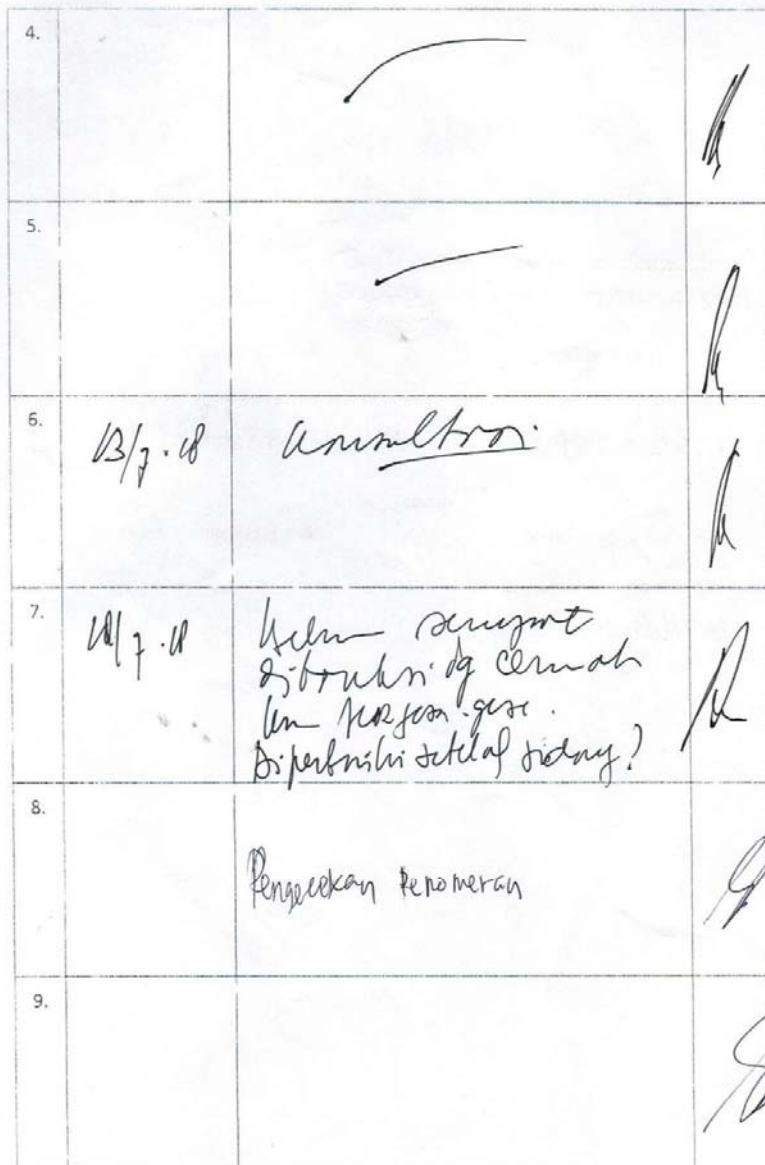 4.
5.
6.
13/7.18 Konsultasi.
7.
18/7.18 Belum sempat
dg cermat
Diperbaiki setelah sidang?
8.
Pengecekan Penomeran
9.